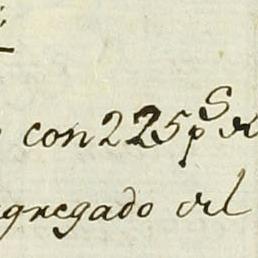 con 225 p.s de
agregado del